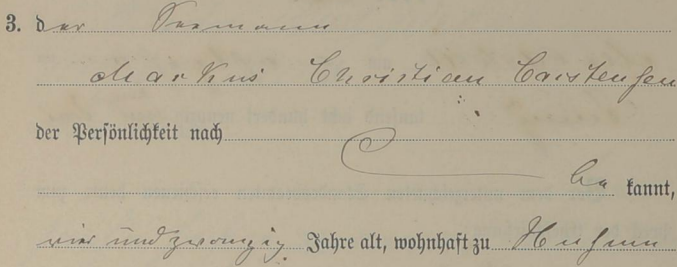 3. der Seemann
Markus Christian Carstensen
der Persönlichkeit nach
be kannt,
vier und zwanzig Jahre alt, wohnhaft zu Husum